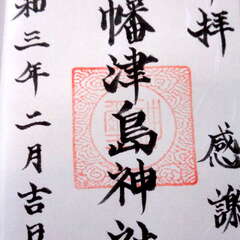 拝 感謝
幡津島神社
和三年二月吉日